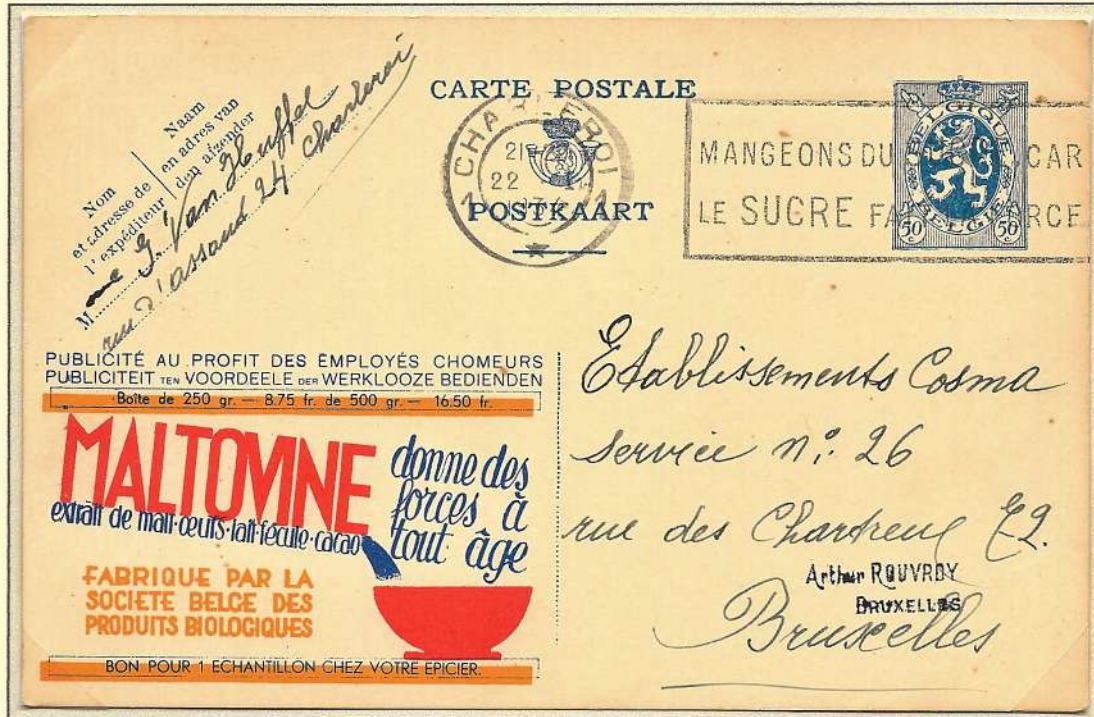 CARTE POSTALE
POSTKAART
CHARLEROI
1 1
22
MANGEONS DU CAR
LE SUCRE FA RCE
BELGIQUE
BELGIE
50 c 50 c
Naam
en adres van
den afzender
Nom
et adresse de
l'expéditeur
M me G. Van Heuffel
rue d'assaut 24 Charleroi
PUBLICITÉ AU PROFIT DES EMPLOYÉS CHOMEURS
PUBLICITEIT TEN VOORDEELE DER WERKLOOZE BEDIENDEN
Boîte de 250 gr. — 8.75 fr. de 500 gr. — 16.50 fr.
MALTOVINE
extrait de malt·œufs·lait·fécule·cacao
donne des
forces à
tout âge
FABRIQUE PAR LA
SOCIETE BELGE DES
PRODUITS BIOLOGIQUES
BON POUR 1 ECHANTILLON CHEZ VOTRE EPICIER.
Etablissements Cosma
service n° 26
rue des Chartreux
Arthur ROUVROY
BRUXELLES
Bruxelles